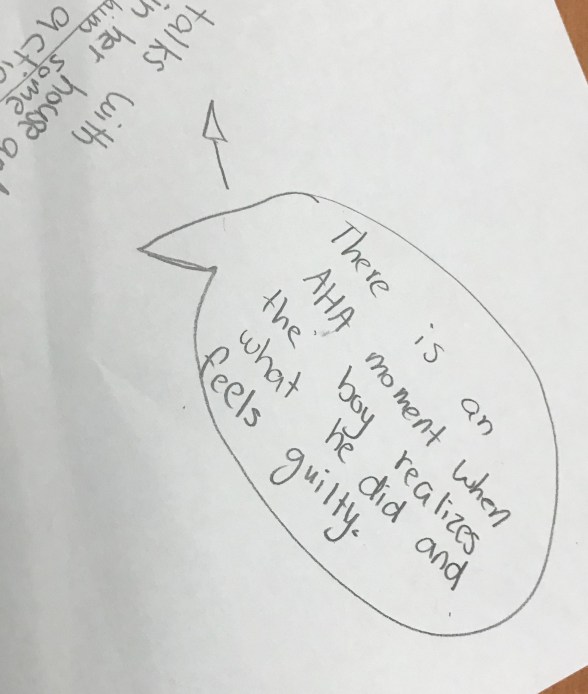 talks with
her house and
him some
acti
There is an
AHA moment when
the boy realizes
what he did and
feels guilty.